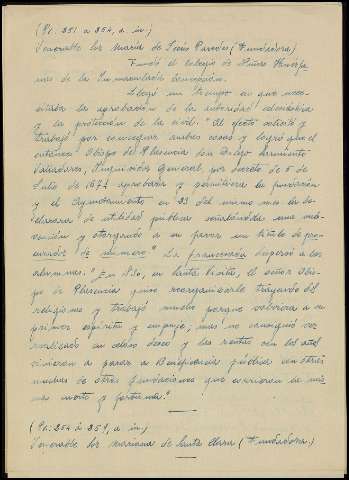 (Pc. 251 a 254, a. in.)
Venerable Sor María de Jesús Paredes (Fundadora)
Fundó el colegio de Niñas Huérfa
nas de la Inmaculada Concepción.
Llegó un tiempo en que nece-
sitaba la aprobación de la autoridad eclesiástica
y la protección de la civil. "Al efecto solicitó y
trabajó por conseguir ambas cosas y logró que el
entonces Obispo de Plasencia don Diego Sarmiento
Valladares, Inquisidor General, por decreto de 5 de
Julio de 1671 aprobara y permitiera la fundación
y el Ayuntamiento en 23 del mismo mes la de-
clarara de utilidad pública señalándola una sub-
vención y otorgando a su favor un título de pro-
curador de número." La franciscana superó a los
alumnas. "En 1830, en Santa Visita, el señor Obis-
po de Plasencia quiso reorganizarle trayendo del
religiosas y trabajó mucho porque volviera a su
primer espíritu y empuje; mas no consiguió ver
realizado su celoso deseo y las rentas con los años
vinieron a parar a Beneficencia pública con otras
muchas de otras fundaciones que corrieron la mis-
ma suerte y fortuna."
(Pc. 254 a 259, a. in.)
Venerable Sor Mariana de Santa Clara (Fundadora.)